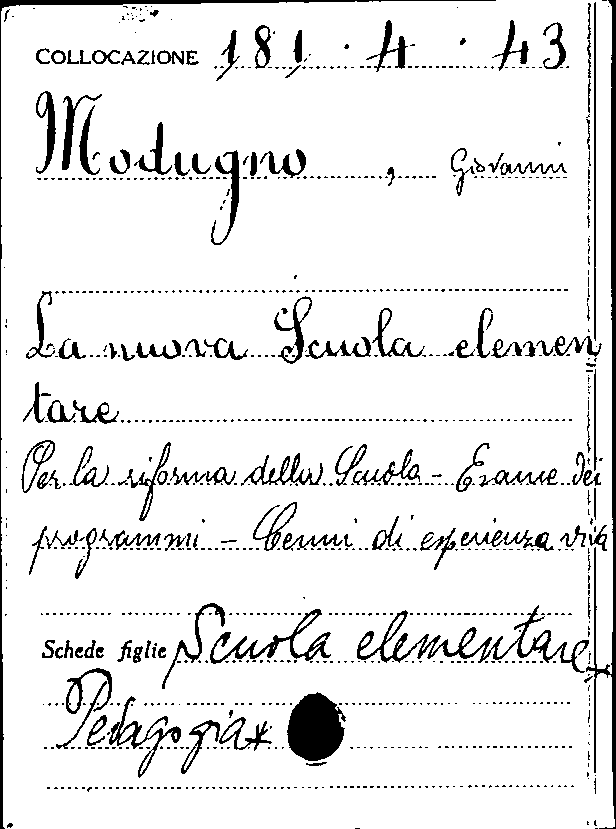 COLLOCAZIONE 181 . 4 . 43
Modugno , Giovanni
La nuova Scuola elemen
tare
Per la riforma della Scuola - Esame dei
programmi - Cenni di esperienza viva
Schede figlie Scuola elementare *
Pedagogia *